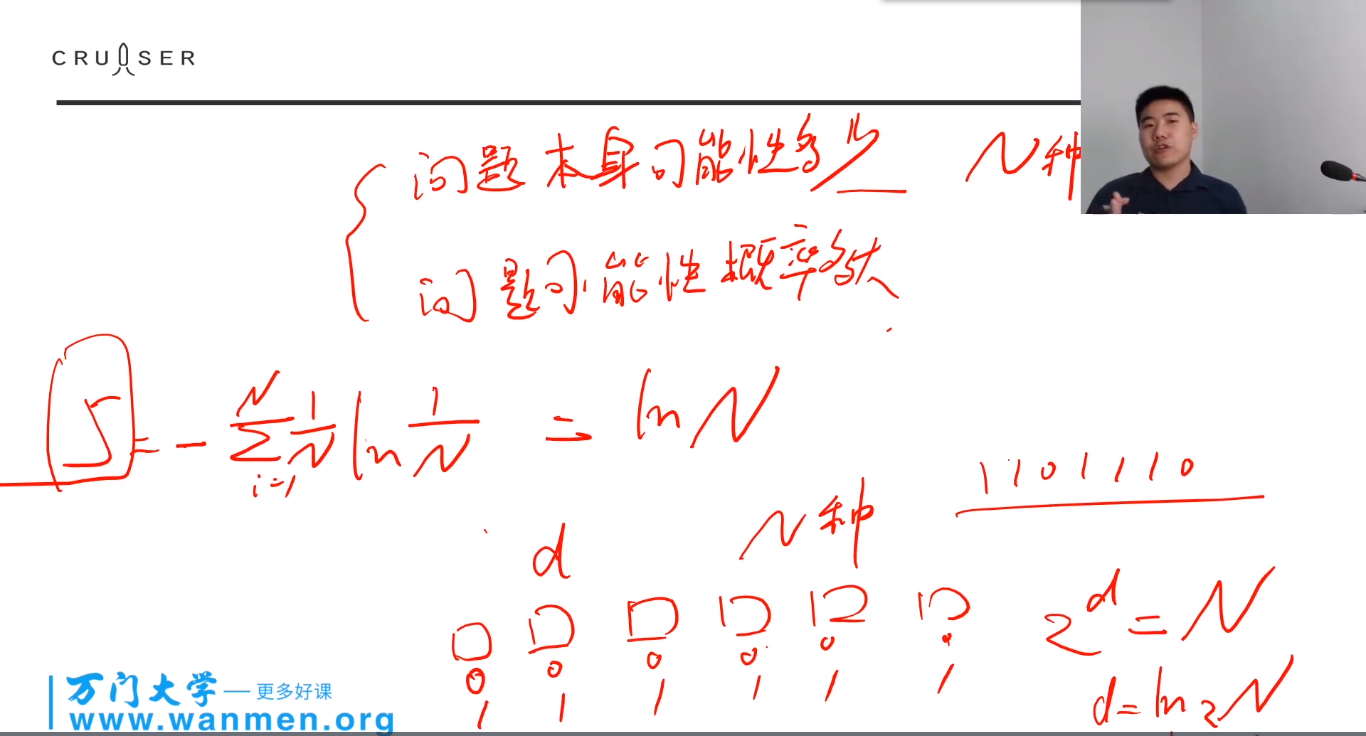 CRUISER
问题本身可能性多少 N种
问题可能性概率多大
S = - ∑_{i=1}^{N} 1/N ln 1/N = ln N
1101110
d N种
□ □ □ □ □ □
0 0 0 0 0
1 1 1 1 1 1
2^d = N
d = ln_2 N
万门大学 — 更多好课
www.wanmen.org